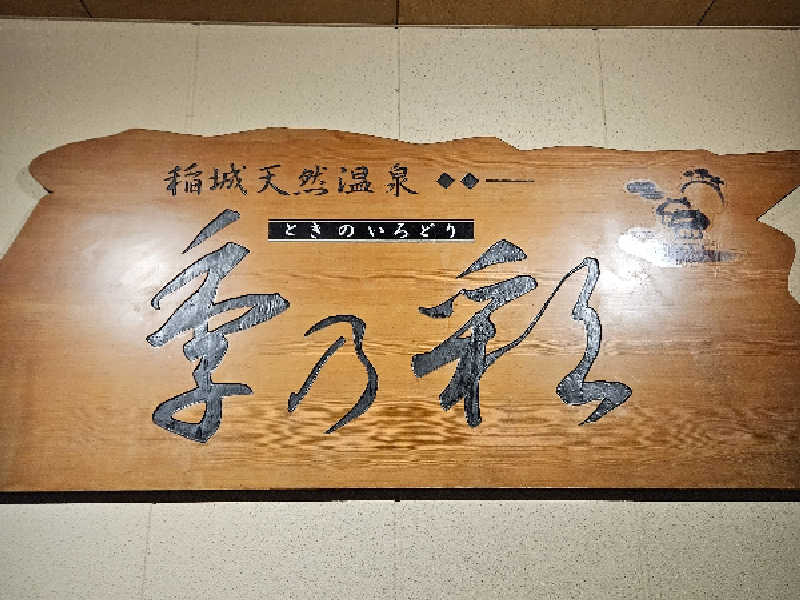 稲城天然温泉
ときのいろどり
季乃彩